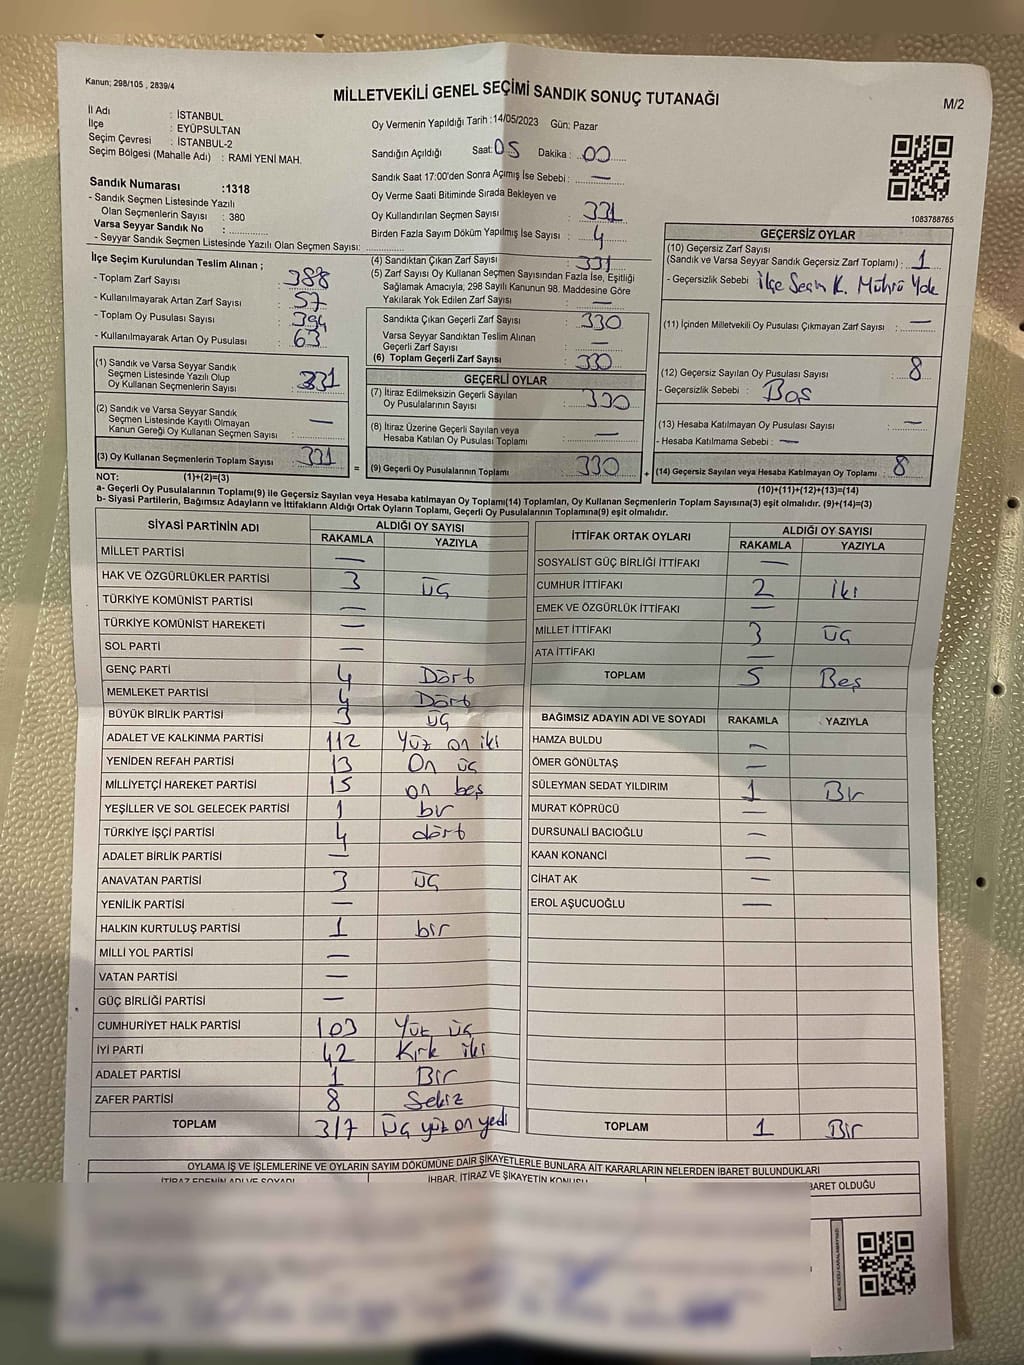 Kanun; 298/105 , 2839/4
MİLLETVEKİLİ GENEL SEÇİMİ SANDIK SONUÇ TUTANAĞI
M/2
İl Adı : İSTANBUL
İlçe : EYÜPSULTAN
Seçim Çevresi : İSTANBUL-2
Seçim Bölgesi (Mahalle Adı) : RAMİ YENİ MAH.
Sandık Numarası :1318
- Sandık Seçmen Listesinde Yazılı
Olan Seçmenlerin Sayısı : 380
Varsa Seyyar Sandık No :
- Seyyar Sandık Seçmen Listesinde Yazılı Olan Seçmen Sayısı:
Oy Vermenin Yapıldığı Tarih :14/05/2023 Gün: Pazar
Sandığın Açıldığı Saat: 05 Dakika : 00
Sandık Saat 17:00'den Sonra Açımış İse Sebebi : —
Oy Verme Saati Bitiminde Sırada Bekleyen ve
Oy Kullandırılan Seçmen Sayısı : 331
Birden Fazla Sayım Döküm Yapılmış İse Sayısı : 4
1083788765
İlçe Seçim Kurulundan Teslim Alınan ;
- Toplam Zarf Sayısı : 388
- Kullanılmayarak Artan Zarf Sayısı : 57
- Toplam Oy Pusulası Sayısı : 394
- Kullanılmayarak Artan Oy Pusulası : 63
(1) Sandık ve Varsa Seyyar Sandık
Seçmen Listesinde Yazılı Olup
Oy Kullanan Seçmenlerin Sayısı : 331
(2) Sandık ve Varsa Seyyar Sandık
Seçmen Listesinde Kayıtlı Olmayan
Kanun Gereği Oy Kullanan Seçmen Sayısı : —
(3) Oy Kullanan Seçmenlerin Toplam Sayısı : 331
(4) Sandıktan Çıkan Zarf Sayısı : 331
(5) Zarf Sayısı Oy Kullanan Seçmen Sayısından Fazla İse, Eşitliği
Sağlamak Amacıyla; 298 Sayılı Kanunun 98. Maddesine Göre
Yakılarak Yok Edilen Zarf Sayısı : —
Sandıkta Çıkan Geçerli Zarf Sayısı : 330
Varsa Seyyar Sandıktan Teslim Alınan
Geçerli Zarf Sayısı : —
(6) Toplam Geçerli Zarf Sayısı : 330
GEÇERLİ OYLAR
(7) İtiraz Edilmeksizin Geçerli Sayılan
Oy Pusulalarının Sayısı : 330
(8) İtiraz Üzerine Geçerli Sayılan veya
Hesaba Katılan Oy Pusulası Toplamı : —
= (9) Geçerli Oy Pusulalarının Toplamı : 330
GEÇERSİZ OYLAR
(10) Geçersiz Zarf Sayısı
(Sandık ve Varsa Seyyar Sandık Geçersiz Zarf Toplamı) : 1
- Geçersizlik Sebebi : İlçe Seçim K. Mührü Yok
(11) İçinden Milletvekili Oy Pusulası Çıkmayan Zarf Sayısı : —
(12) Geçersiz Sayılan Oy Pusulası Sayısı : 8
- Geçersizlik Sebebi : Boş
(13) Hesaba Katılmayan Oy Pusulası Sayısı : —
- Hesaba Katılmama Sebebi : —
+ (14) Geçersiz Sayılan veya Hesaba Katılmayan Oy Toplamı : 8
NOT: (1)+(2)=(3)
(10)+(11)+(12)+(13)=(14)
a- Geçerli Oy Pusulalarının Toplamı(9) ile Geçersiz Sayılan veya Hesaba katılmayan Oy Toplamı(14) Toplamları, Oy Kullanan Seçmenlerin Toplam Sayısına(3) eşit olmalıdır. (9)+(14)=(3)
b- Siyasi Partilerin, Bağımsız Adayların ve İttifakların Aldığı Ortak Oyların Toplamı, Geçerli Oy Pusulalarının Toplamına(9) eşit olmalıdır.
SİYASİ PARTİNİN ADI ALDIĞI OY SAYISI
RAKAMLA YAZIYLA
MİLLET PARTİSİ —
HAK VE ÖZGÜRLÜKLER PARTİSİ 3 üç
TÜRKİYE KOMÜNİST PARTİSİ —
TÜRKİYE KOMÜNİST HAREKETİ —
SOL PARTİ —
GENÇ PARTİ 4 Dört
MEMLEKET PARTİSİ 4 Dört
BÜYÜK BİRLİK PARTİSİ 3 üç
ADALET VE KALKINMA PARTİSİ 112 Yüz on iki
YENİDEN REFAH PARTİSİ 13 On üç
MİLLİYETÇİ HAREKET PARTİSİ 15 on beş
YEŞİLLER VE SOL GELECEK PARTİSİ 1 bir
TÜRKİYE İŞÇİ PARTİSİ 4 dört
ADALET BİRLİK PARTİSİ —
ANAVATAN PARTİSİ 3 üç
YENİLİK PARTİSİ —
HALKIN KURTULUŞ PARTİSİ 1 bir
MİLLİ YOL PARTİSİ —
VATAN PARTİSİ —
GÜÇ BİRLİĞİ PARTİSİ —
CUMHURİYET HALK PARTİSİ 103 Yüz üç
İYİ PARTİ 42 Kırk iki
ADALET PARTİSİ 1 Bir
ZAFER PARTİSİ 8 Sekiz
TOPLAM 317 üç yüz on yedi
İTTİFAK ORTAK OYLARI ALDIĞI OY SAYISI
RAKAMLA YAZIYLA
SOSYALİST GÜÇ BİRLİĞİ İTTİFAKI —
CUMHUR İTTİFAKI 2 İki
EMEK VE ÖZGÜRLÜK İTTİFAKI —
MİLLET İTTİFAKI 3 üç
ATA İTTİFAKI —
TOPLAM 5 Beş
BAĞIMSIZ ADAYIN ADI VE SOYADI RAKAMLA YAZIYLA
HAMZA BULDU —
ÖMER GÖNÜLTAŞ —
SÜLEYMAN SEDAT YILDIRIM 1 Bir
MURAT KÖPRÜCÜ —
DURSUNALİ BACIOĞLU —
KAAN KONANCİ —
CİHAT AK —
EROL AŞUCUOĞLU —
TOPLAM 1 Bir
OYLAMA İŞ VE İŞLEMLERİNE VE OYLARIN SAYIM DÖKÜMÜNE DAİR ŞİKAYETLERLE BUNLARA AİT KARARLARIN NELERDEN İBARET BULUNDUKLARI
İTİRAZ EDENİN ADI VE SOYADI İHBAR, İTİRAZ VE ŞİKAYETİN KONUSU BARET OLDUĞU